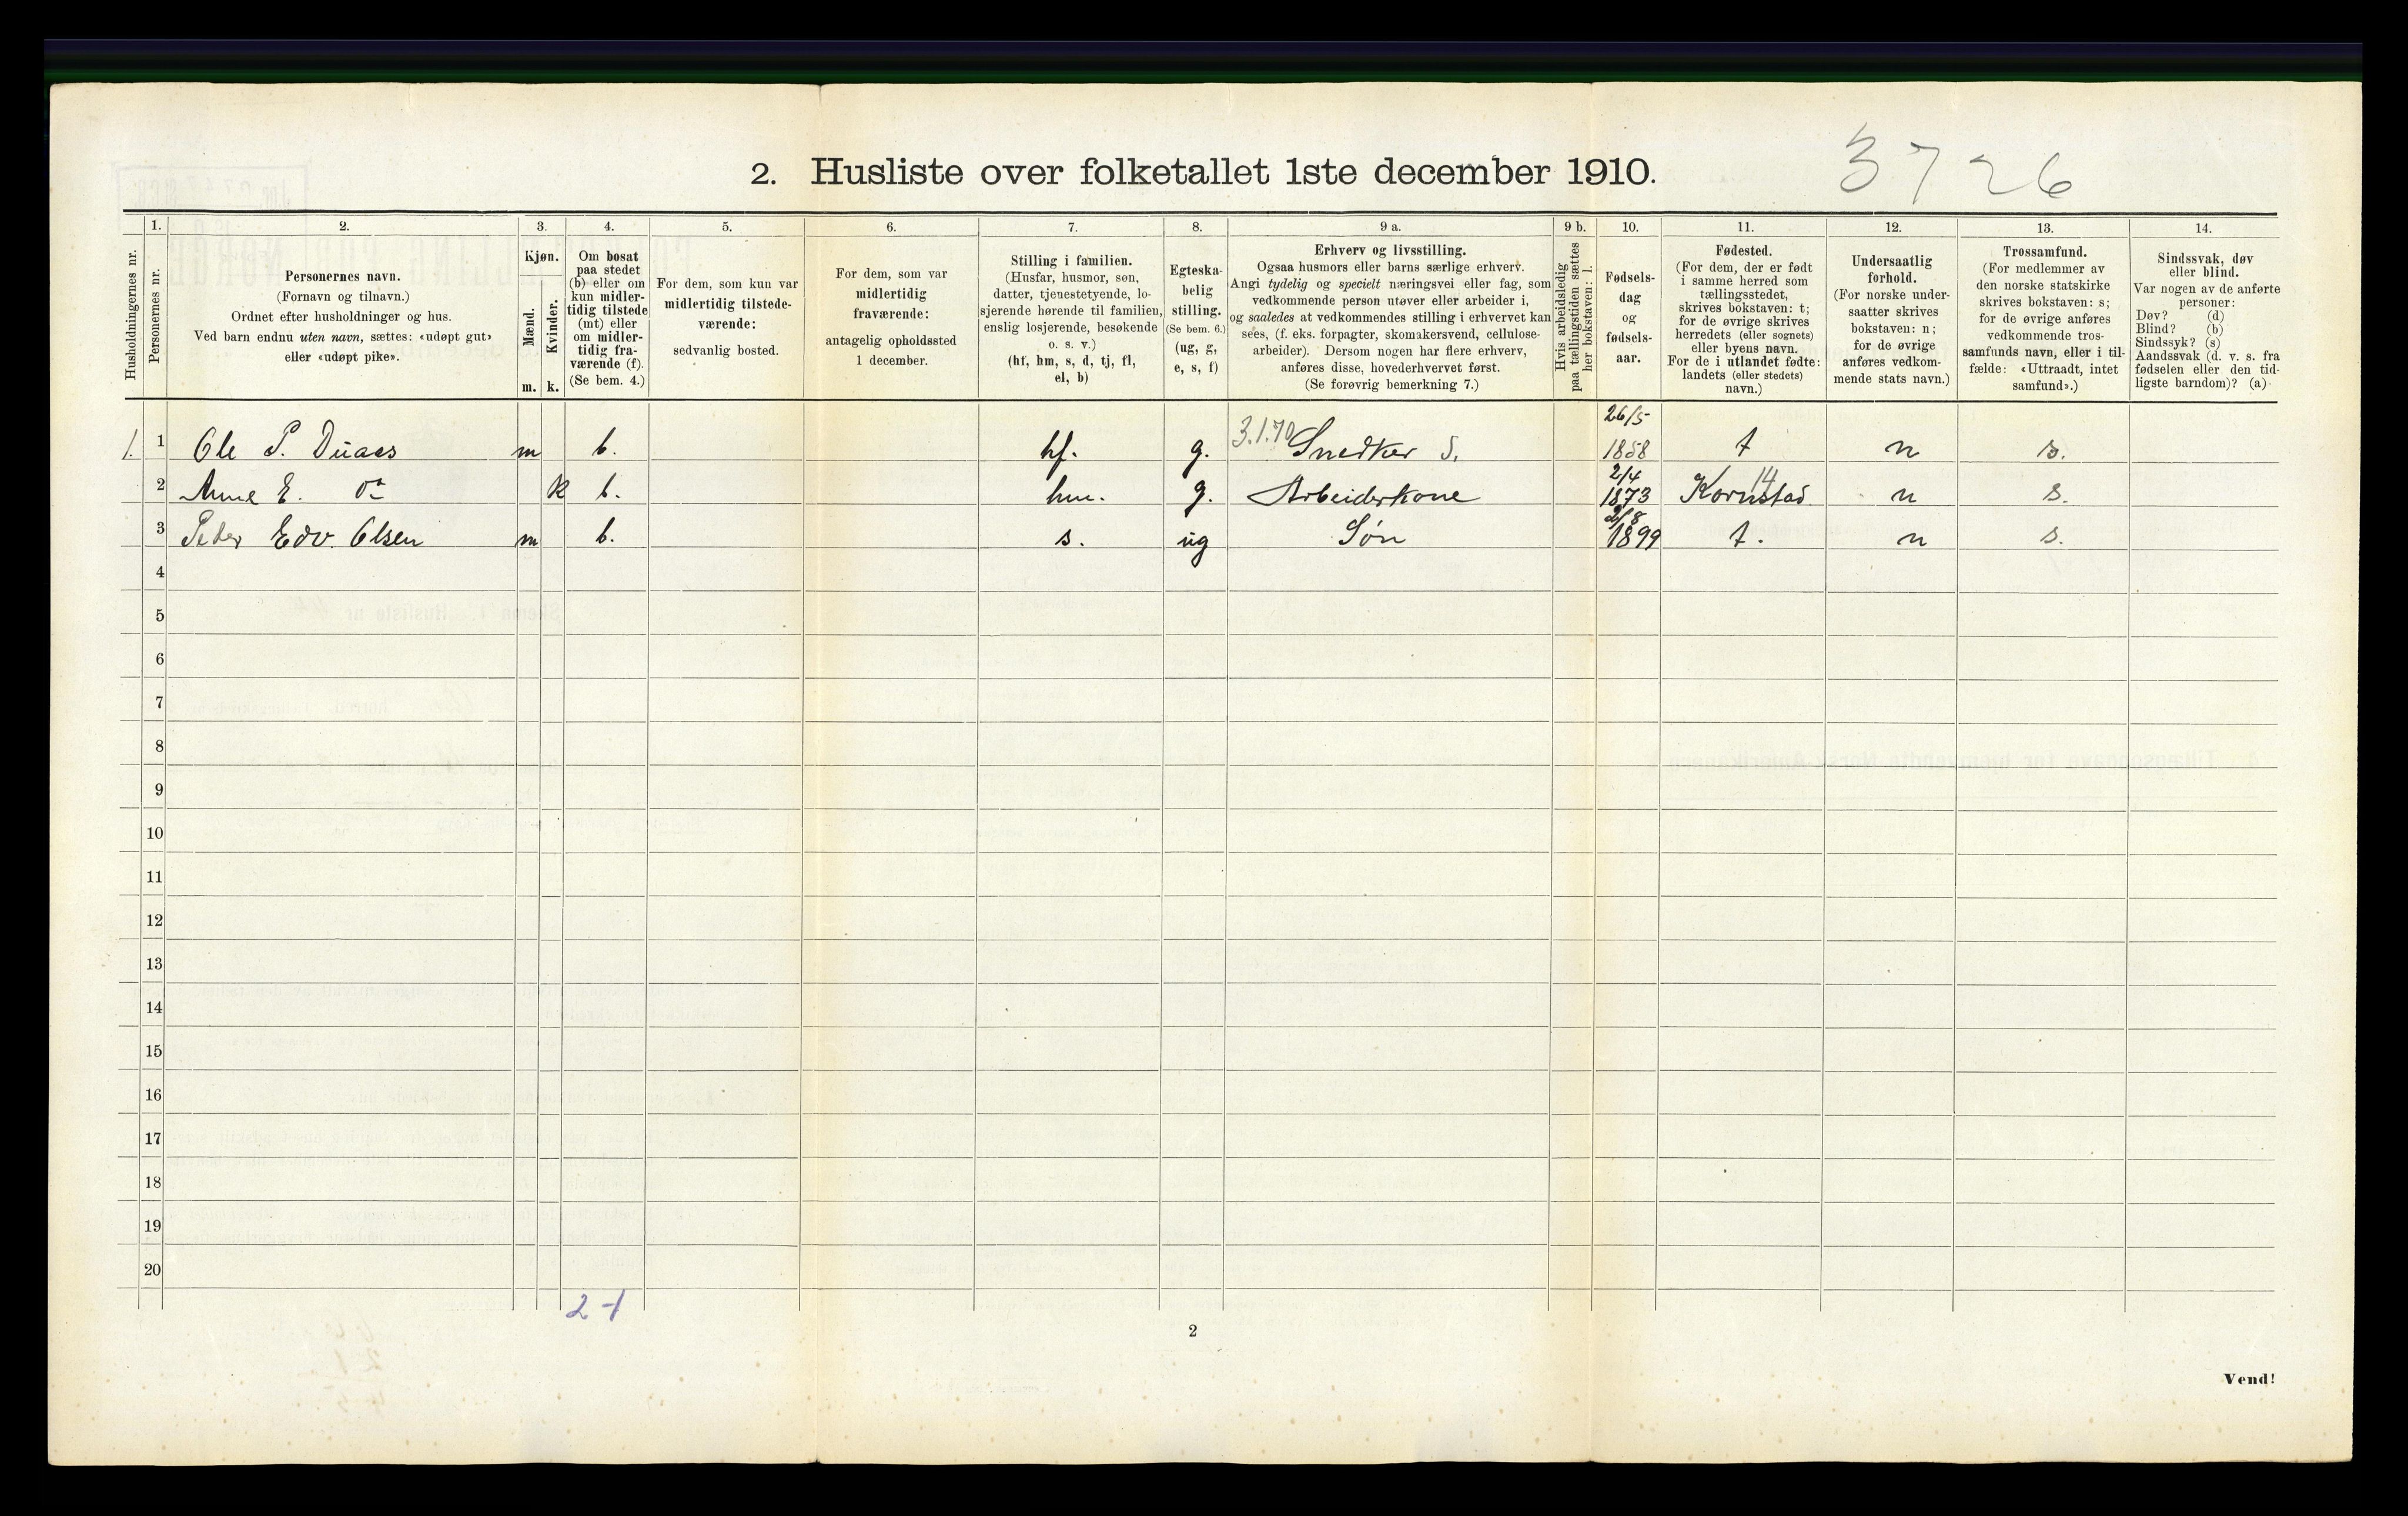 2. Husliste over folketallet 1ste december 1910.
3726
Husholdningernes nr.
1.
Personernes nr.
2.
Personernes navn.
(Fornavn og tilnavn.)
Ordnet efter husholdninger og hus.
Ved barn endnu uten navn, sættes: «udøpt gut»
eller «udøpt pike».
3.
Kjøn.
Mænd.
Kvinder.
m. k.
4.
Om bosat
paa stedet
(b) eller om
kun midler-
tidig tilstede
(mt) eller
om midler-
tidig fra-
værende (f).
(Se bem. 4.)
5.
For dem, som kun var
midlertidig tilstede-
værende:
sedvanlig bosted.
6.
For dem, som var
midlertidig
fraværende:
antagelig opholdssted
1 december.
7.
Stilling i familien.
(Husfar, husmor, søn,
datter, tjenestetyende, lo-
sjerende hørende til familien,
enslig losjerende, besøkende
o. s. v.)
(hf, hm, s, d, tj, fl,
el, b)
8.
Egteska-
belig
stilling.
(Se bem. 6.)
(ug, g,
e, s, f)
9 a.
Erhverv og livsstilling.
Ogsaa husmors eller barns særlige erhverv.
Angi tydelig og specielt næringsvei eller fag, som
vedkommende person utøver eller arbeider i,
og saaledes at vedkommendes stilling i erhvervet kan
sees, (f. eks. forpagter, skomakersvend, cellulose-
arbeider). Dersom nogen har flere erhverv,
anføres disse, hovederhvervet først.
(Se forøvrig bemerkning 7.)
9 b.
Hvis arbeidsledig
paa tællingstiden sættes
her bokstaven: l.
10.
Fødsels-
dag
og
fødsels-
aar.
11.
Fødested.
(For dem, der er født
i samme herred som
tællingsstedet,
skrives bokstaven: t;
for de øvrige skrives
herredets (eller sognets)
eller byens navn.
For de i utlandet fødte:
landets (eller stedets)
navn.)
12.
Undersaatlig
forhold.
(For norske under-
saatter skrives
bokstaven: n;
for de øvrige
anføres vedkom-
mende stats navn.)
13.
Trossamfund.
(For medlemmer av
den norske statskirke
skrives bokstaven: s;
for de øvrige anføres
vedkommende tros-
samfunds navn, eller i til-
fælde: «Uttraadt, intet
samfund».)
14.
Sindssvak, døv
eller blind.
Var nogen av de anførte
personer:
Døv? (d)
Blind? (b)
Sindssyk? (s)
Aandssvak (d. v. s. fra
fødselen eller den tid-
ligste barndom)? (a)
1. 1 Ole P. Duaas m b. hf. g. 3.1.70 Snedker S. 26/5 1858 t n s.
2 Anne E. do k b. hm. g. Arbeiderkone 2/4 1873 Kornstad 14 n s.
3 Peter Edv. Olsen m b. s. ug Søn 2/8 1899 t. n s.
4
5
6
7
8
9
10
11
12
13
14
15
16
17
18
19
20
2-1
2
Vend!